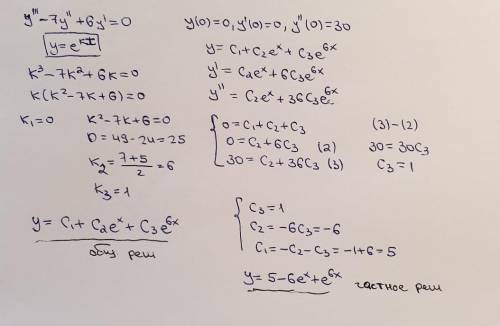 y''' - 7y'' + 6y' = 0
y = e^kx
k³ - 7k² + 6k = 0
k(k² - 7k + 6) = 0
k₁ = 0 k² - 7k + 6 = 0
D = 49 - 24 = 25
k₂ = (7+5)/2 = 6
k₃ = 1
y = C₁ + C₂e^x + C₃e^6x
общ реш
y(0) = 0, y'(0) = 0, y''(0) = 30
y = C₁ + C₂e^x + C₃e^6x
y' = C₂e^x + 6C₃e^6x
y'' = C₂e^x + 36C₃e^6x
{ 0 = C₁ + C₂ + C₃ (3) - (2)
0 = C₂ + 6C₃ (2) 30 = 30C₃
30 = C₂ + 36C₃ (3) C₃ = 1
{ C₃ = 1
C₂ = -6C₃ = -6
C₁ = -C₂ - C₃ = -1 + 6 = 5
y = 5 - 6e^x + e^6x частное реш